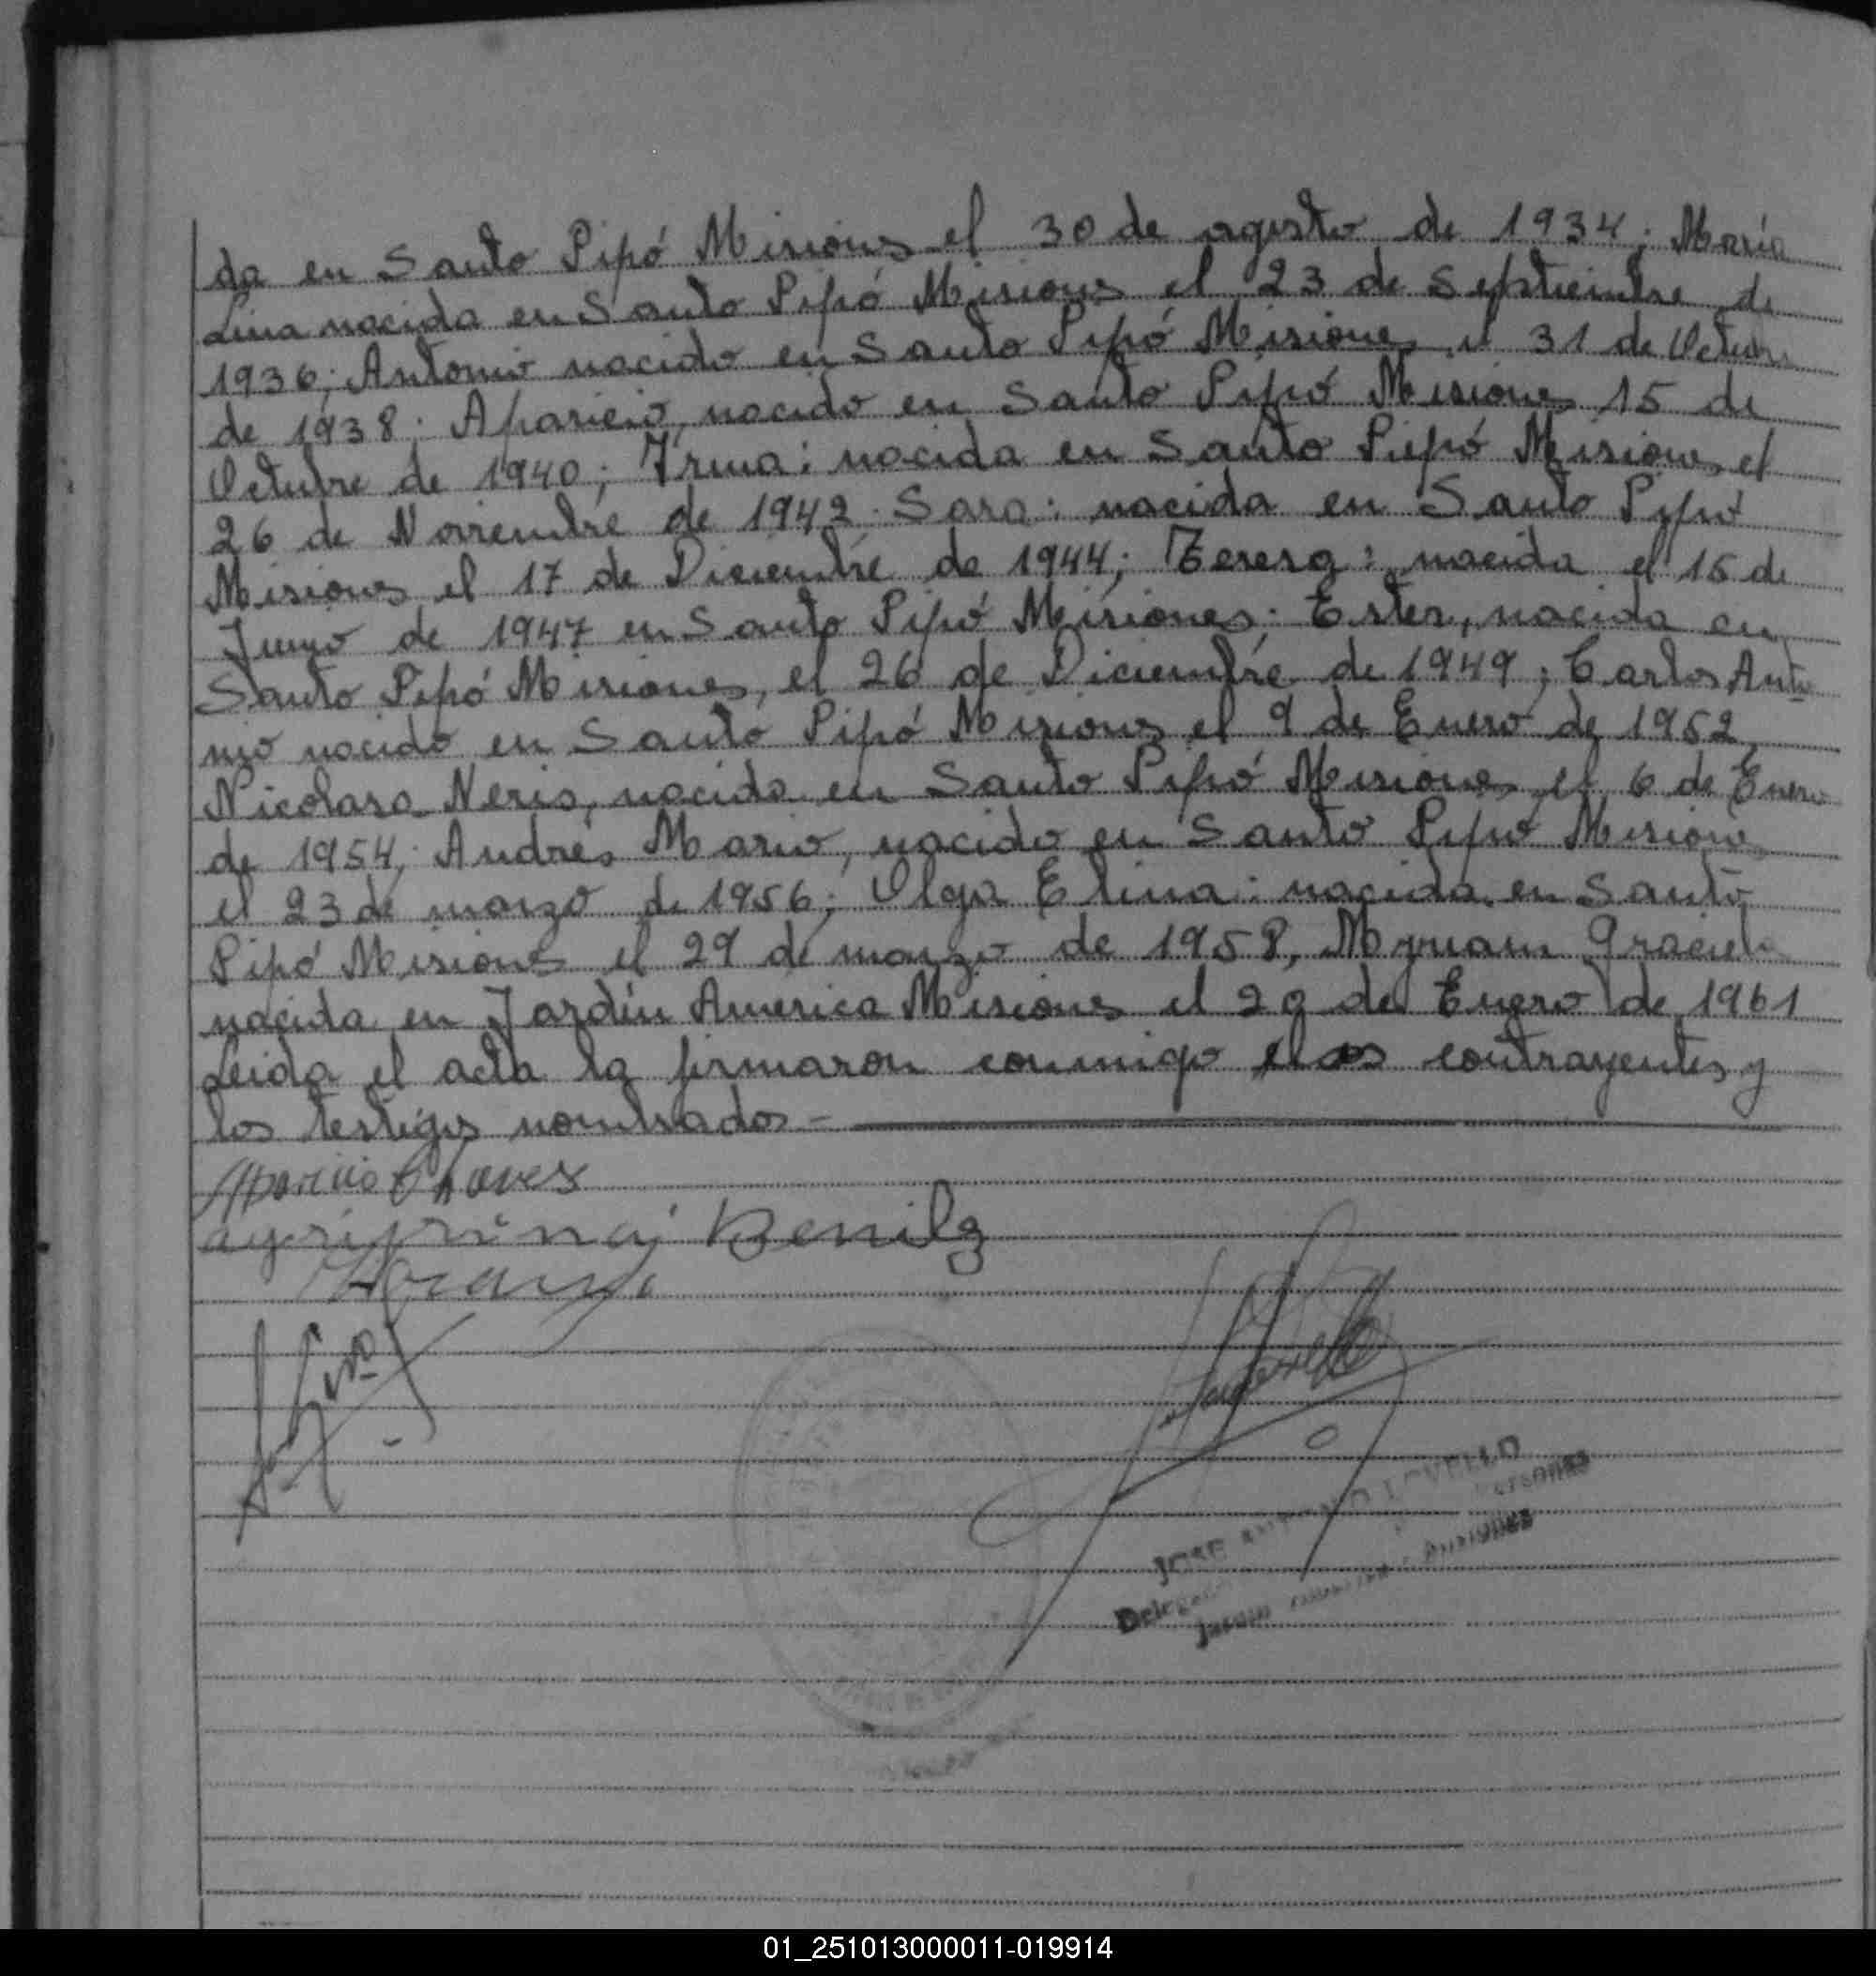 da en Santo Pipó Misiones el 30 de agosto de 1934; María
Lina nacida en Santo Pipó Misiones el 23 de Septiembre de
1936; Antonio nacido en Santo Pipó Misiones el 31 de Octubre
de 1938; Aparicio, nacido en Santo Pipó Misiones 15 de
Octubre de 1940; Irma: nacida en Santo Pipó Misiones el
26 de Noviembre de 1942. Sara: nacida en Santo Pipó
Misiones el 17 de Diciembre de 1944; Teresa: nacida el 15 de
Junio de 1947 en Santo Pipó Misiones; Ester, nacida en
Santo Pipó Misiones, el 26 de Diciembre de 1949; Carlos Anto
nio nacido en Santo Pipó Misiones el 9 de Enero de 1952,
Nicolasa Neris, nacida en Santo Pipó Misiones el 6 de Enero
de 1954; Andrés Mario, nacido en Santo Pipó Misiones
el 23 de marzo de 1956; Olga Elina: nacida en Santo
Pipó Misiones el 29 de marzo de 1958, Myriam Graciela
nacida en Jardín America Misiones el 29 de Enero de 1961
Leida el acta la firmaron conmigo los contrayentes y
los testigos nombrados -
Aparicio Chaves
agripina Benilg
JOSE
Jardin Misiones
01_251013000011-019914